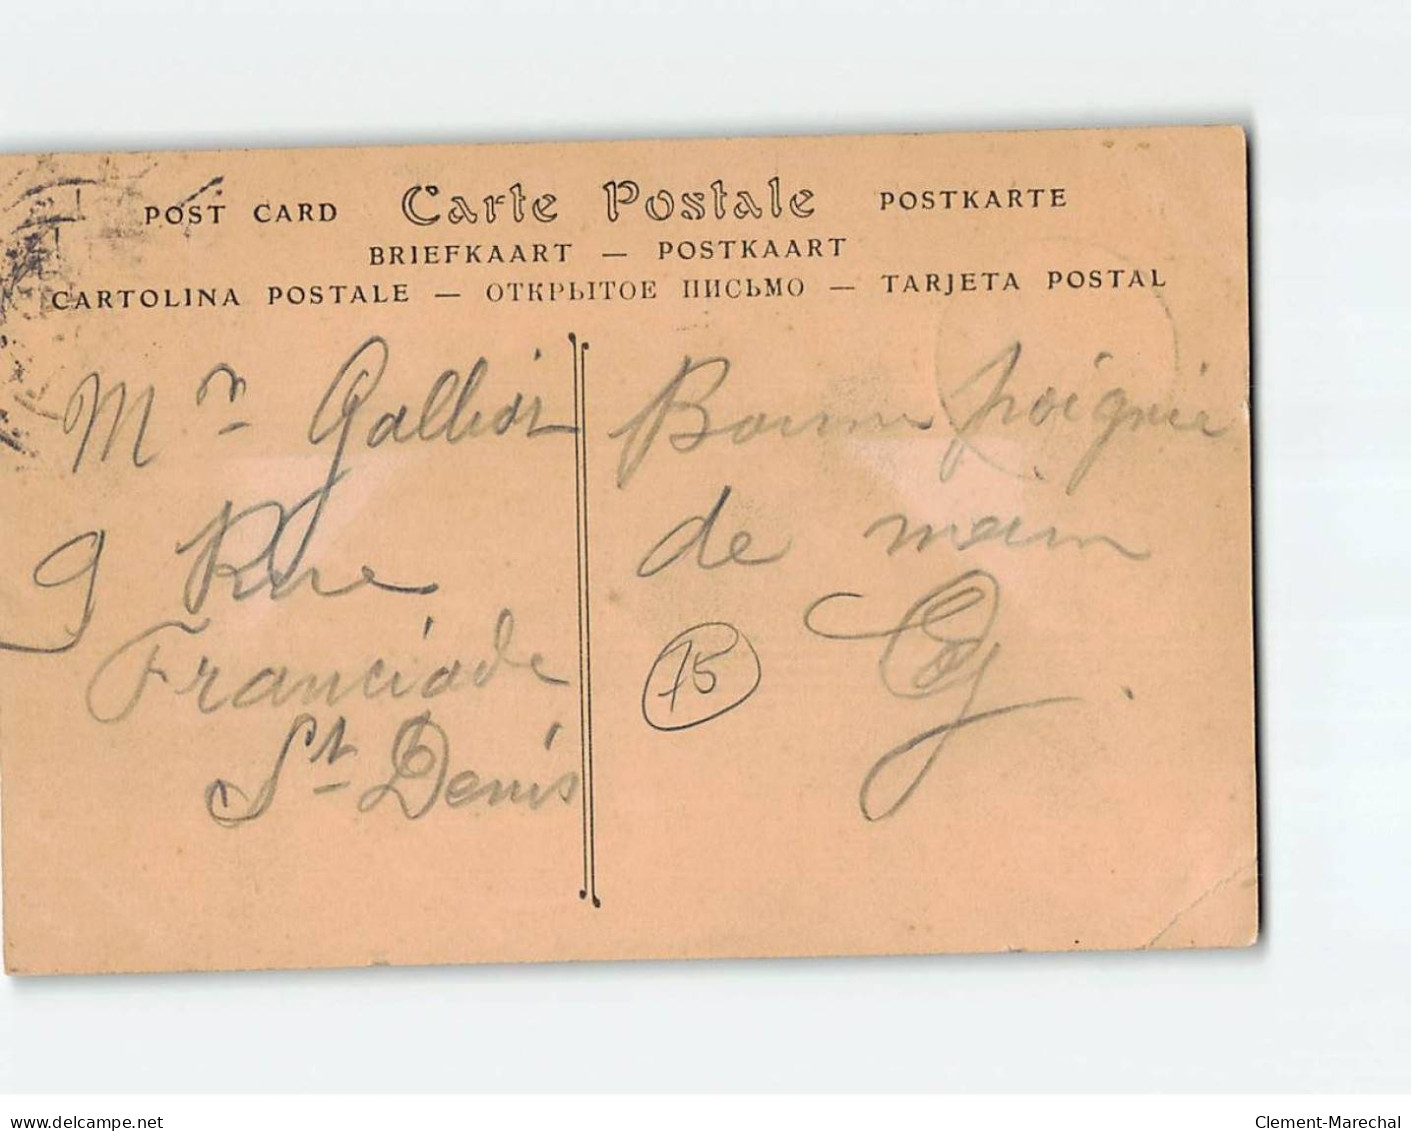 POST CARD Carte Postale POSTKARTE
BRIEFKAART — POSTKAART
CARTOLINA POSTALE — ОТКРЫТОЕ ПИСЬМО — TARJETA POSTAL
Mr Galliot
9 Rue
Franciade
St Denis
Bonne poignée
de main
75
www.delcampe.net
Clement-Marechal